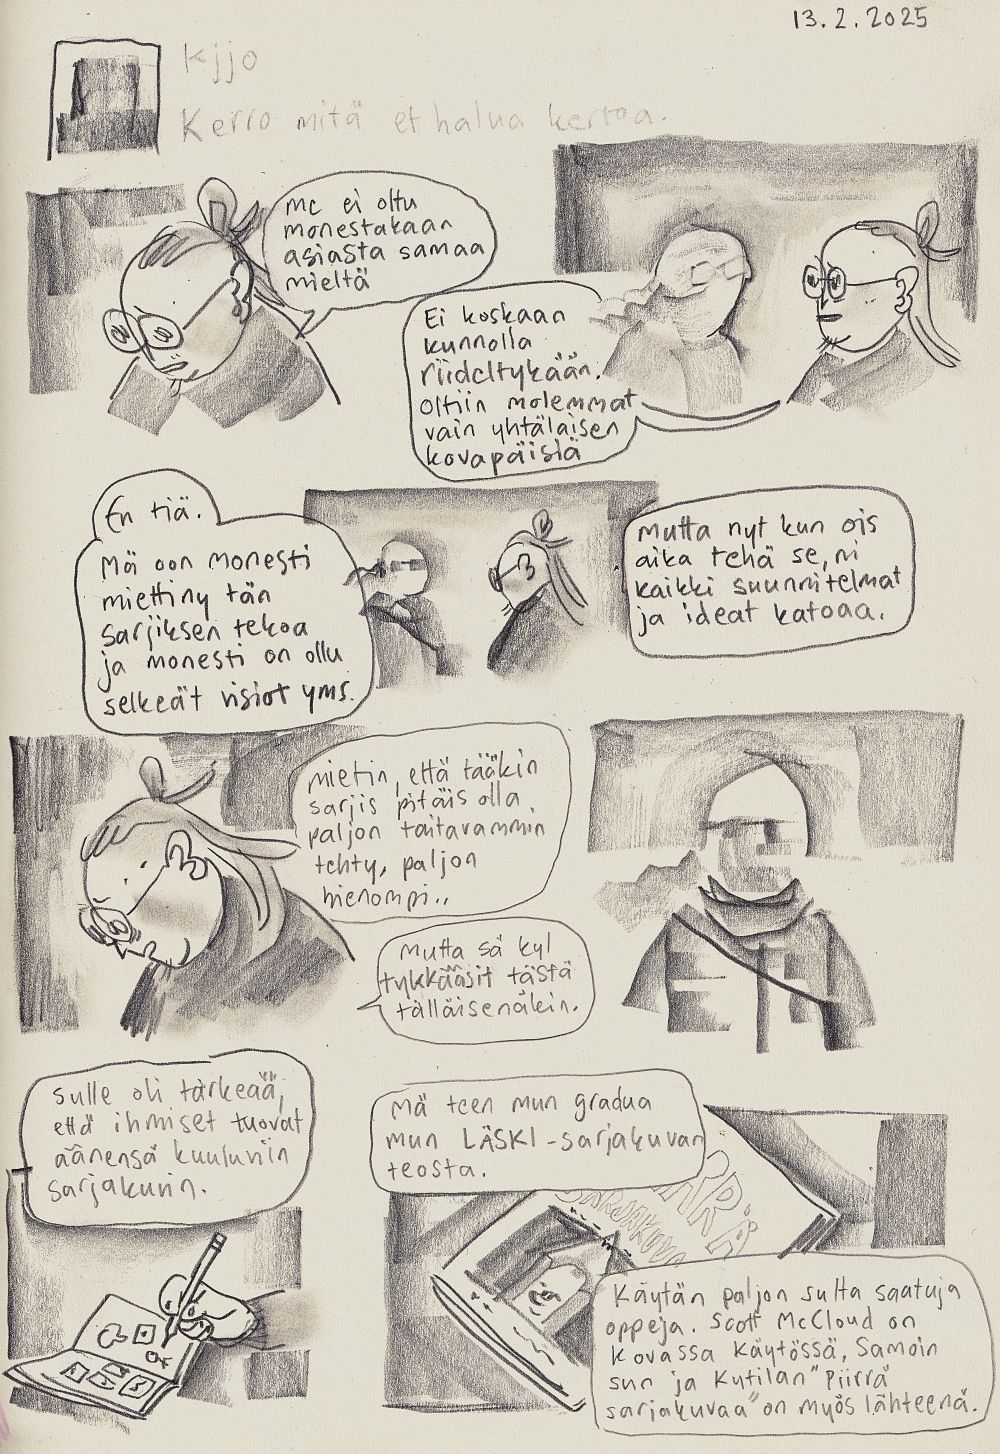 13.2.2025
Kjjo
Kerro mitä et halua kertoa.
me ei oltu
monestakaan
asiasta samaa
mieltä
Ei koskaan
kunnolla
riideltykään.
Oltiin molemmat
vain yhtälaisen
kovapäisiä
En tiä.
Mä oon monesti
miettiny tän
sarjiksen tekoa
ja monesti on ollu
selkeät visiot yms.
Mutta nyt kun ois
aika tehä se, ni
kaikki suunnitelmat
ja ideat katoaa.
mietin, että tääkin
sarjis pitäis olla
paljon taitavammin
tehty, paljon
hienompi..
Mutta sä kyl
tykkääsit tästä
tälläisenäkin.
Sulle oli tärkeää,
että ihmiset tuovat
äänensä kuuluviin
sarjakuvin.
Mä teen mun gradua
mun LÄSKI-sarjakuvan
teosta.
SARJAKUVAA
Käytän paljon sulta saatuja
oppeja. Scott McCloud on
kovassa käytössä, Samoin
sun ja Kutilan "Piirrä
sarjakuvaa" on myös lähteenä.